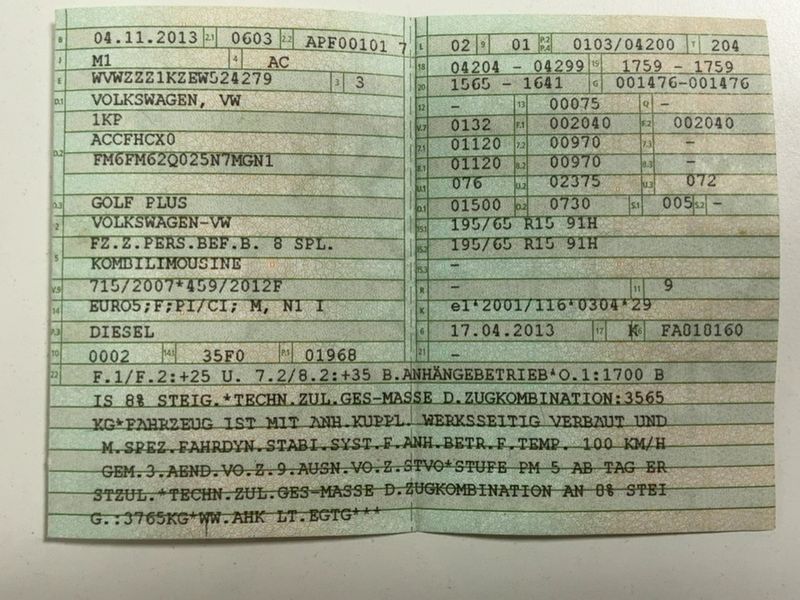 B 04.11.2013 2.1 0603 2.2 APF00101 7
J M1 4 AC
E WVWZZZ1KZEW524279 3 3
D.1 VOLKSWAGEN, VW
1KP
ACCFHCX0
D.2 FM6FM62Q025N7MGN1
D.3 GOLF PLUS
2 VOLKSWAGEN-VW
5 FZ.Z.PERS.BEF.B. 8 SPL.
KOMBILIMOUSINE
V.9 715/2007*459/2012F
14 EURO5;F;PI/CI; M, N1 I
P.3 DIESEL
10 0002 14.1 35F0 P.1 01968
L 02 9 01 P.2 P.4 0103/04200 T 204
18 04204 - 04299 19 1759 - 1759
20 1565 - 1641 G 001476-001476
12 - 13 00075 Q -
V.7 0132 F.1 002040 F.2 002040
7.1 01120 7.2 00970 7.3 -
8.1 01120 8.2 00970 8.3 -
U.1 076 U.2 02375 U.3 072
O.1 01500 O.2 0730 S.1 005 S.2 -
15.1 195/65 R15 91H
15.2 195/65 R15 91H
15.3 -
R - 11 9
K e1*2001/116*0304*29
6 17.04.2013 17 K 16 FA818160
21 -
22 F.1/F.2:+25 U. 7.2/8.2:+35 B.ANHÄNGEBETRIEB*O.1:1700 B
IS 8% STEIG.*TECHN.ZUL.GES-MASSE D.ZUGKOMBINATION:3565
KG*FAHRZEUG IST MIT ANH.KUPPL. WERKSSEITIG VERBAUT UND
M.SPEZ.FAHRDYN.STABI.SYST.F.ANH.BETR.F.TEMP. 100 KM/H
GEM.3.AEND.VO.Z.9.AUSN.VO.Z.STVO*STUFE PM 5 AB TAG ER
STZUL.*TECHN.ZUL.GES-MASSE D.ZUGKOMBINATION AN 8% STEI
G.:3765KG*WW.AHK LT.EGTG***